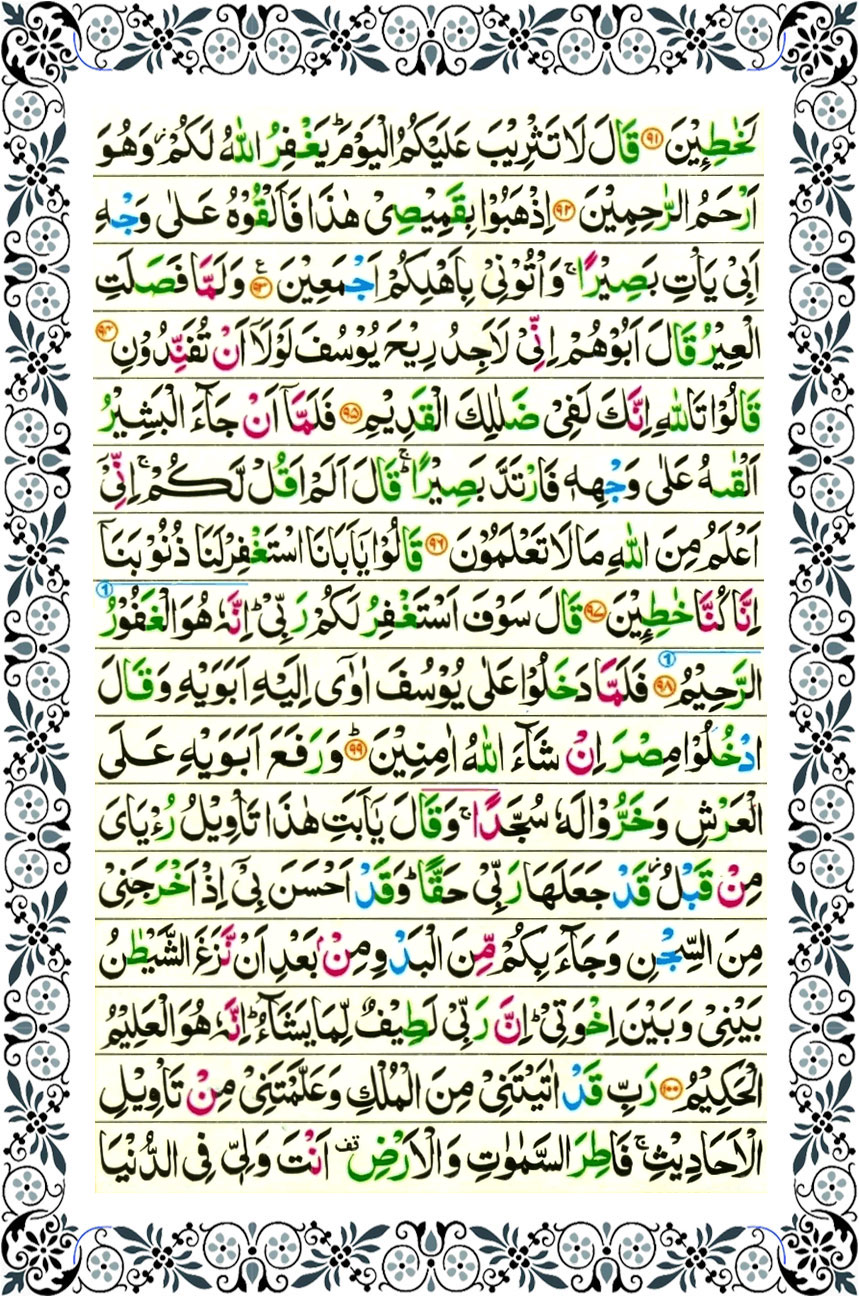 لَخٰطِـِٕيْنَ ﴿۹۱﴾ قَالَ لَا تَثْرِيْبَ عَلَيْكُمُ الْيَوْمَ ؕ يَغْفِرُ اللّٰهُ لَكُمْ ؗ وَهُوَ
اَرْحَمُ الرّٰحِمِيْنَ ﴿۹۲﴾ اِذْهَبُوْا بِقَمِيْصِيْ هٰذَا فَاَلْقُوْهُ عَلٰى وَجْهِ
اَبِيْ يَاْتِ بَصِيْرًا ۚ وَاْتُوْنِيْ بِاَهْلِكُمْ اَجْمَعِيْنَ ﴿۹۳﴾ ع وَلَمَّا فَصَلَتِ
الْعِيْرُ قَالَ اَبُوْهُمْ اِنِّيْ لَاَجِدُ رِيْحَ يُوْسُفَ لَوْلَاۤ اَنْ تُفَنِّدُوْنِ ﴿۹۴﴾
قَالُوْا تَاللّٰهِ اِنَّكَ لَفِيْ ضَلٰلِكَ الْقَدِيْمِ ﴿۹۵﴾ فَلَمَّاۤ اَنْ جَآءَ الْبَشِيْرُ
اَلْقٰىهُ عَلٰى وَجْهِهٖ فَارْتَدَّ بَصِيْرًا ۚ ؕ قَالَ اَلَمْ اَقُلْ لَّكُمْ ۚ اِنِّيْۤ
اَعْلَمُ مِنَ اللّٰهِ مَا لَا تَعْلَمُوْنَ ﴿۹۶﴾ قَالُوْا يٰۤاَبَانَا اسْتَغْفِرْ لَنَا ذُنُوْبَنَاۤ
اِنَّا كُنَّا خٰطِـِٕيْنَ ﴿۹۷﴾ قَالَ سَوْفَ اَسْتَغْفِرُ لَكُمْ رَبِّيْ ؕ اِنَّهٗ هُوَ الْغَفُوْرُ ①
الرَّحِيْمُ ﴿۹۸﴾ ① فَلَمَّا دَخَلُوْا عَلٰى يُوْسُفَ اٰوٰۤى اِلَيْهِ اَبَوَيْهِ وَقَالَ
ادْخُلُوْا مِصْرَ اِنْ شَآءَ اللّٰهُ اٰمِنِيْنَ ؕ ﴿۹۹﴾ وَرَفَعَ اَبَوَيْهِ عَلَى
الْعَرْشِ وَخَرُّوْا لَهٗ سُجَّدًا ۚ وَقَالَ يٰۤاَبَتِ هٰذَا تَاْوِيْلُ رُءْيَايَ
مِنْ قَبْلُ ؗ قَدْ جَعَلَهَا رَبِّيْ حَقًّا ؕ وَقَدْ اَحْسَنَ بِيْۤ اِذْ اَخْرَجَنِيْ
مِنَ السِّجْنِ وَجَآءَ بِكُمْ مِّنَ الْبَدْوِ مِنْۢ بَعْدِ اَنْ نَّزَغَ الشَّيْطٰنُ
بَيْنِيْ وَبَيْنَ اِخْوَتِيْ ؕ اِنَّ رَبِّيْ لَطِيْفٌ لِّمَا يَشَآءُ ؕ اِنَّهٗ هُوَ الْعَلِيْمُ
الْحَكِيْمُ ﴿۱۰۰﴾ رَبِّ قَدْ اٰتَيْتَنِيْ مِنَ الْمُلْكِ وَعَلَّمْتَنِيْ مِنْ تَاْوِيْلِ
الْاَحَادِيْثِ ۚ فَاطِرَ السَّمٰوٰتِ وَالْاَرْضِ قف اَنْتَ وَلِيّٖ فِي الدُّنْيَا